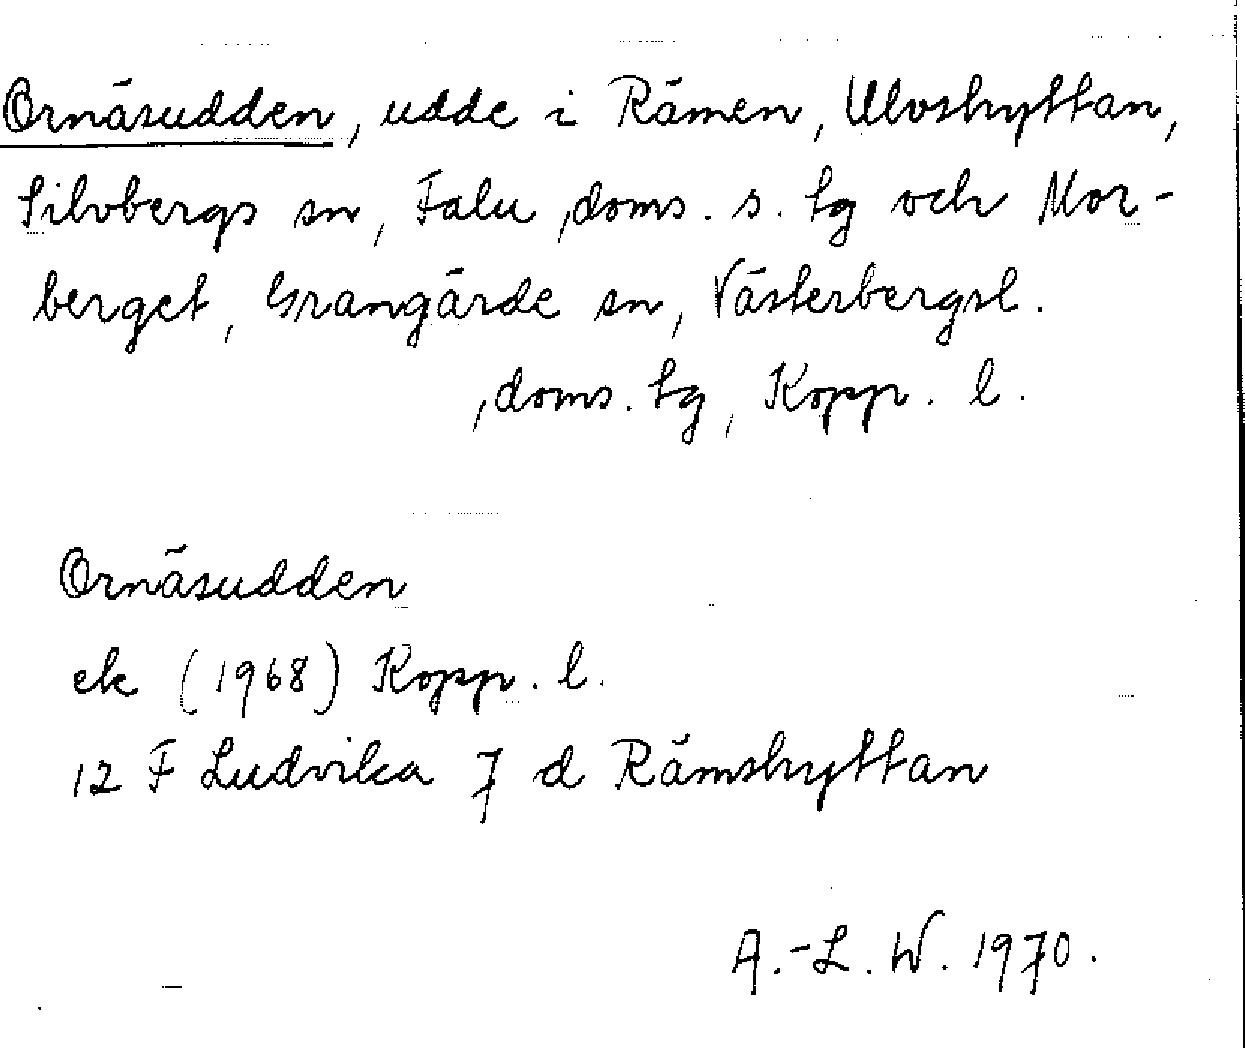 Ornäsudden, udde i Rämen, Ulvshyttan,
Silvbergs sn, Falu doms. s. tg och Mor-
berget, Grangärde sn, Västerbergsl.
doms. tg, Kopp. l.
Ornäsudden
ek (1968) Kopp. l.
12 F Ludvika 7 d Rämshyttan
A.-L. W. 1970.